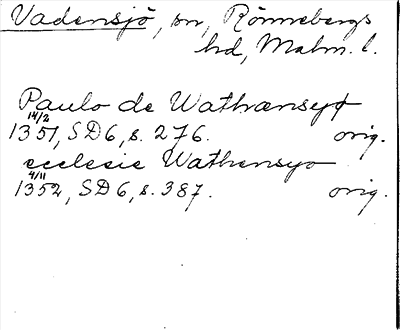 Vadensjö, sn, Rönnebergs
hd, Malm. l.
Paulo de Wathænsyø
14/2
1351, SD6, s. 276. orig.
ecclesie Wathensyo
4/11
1352, SD6, s. 387. orig.